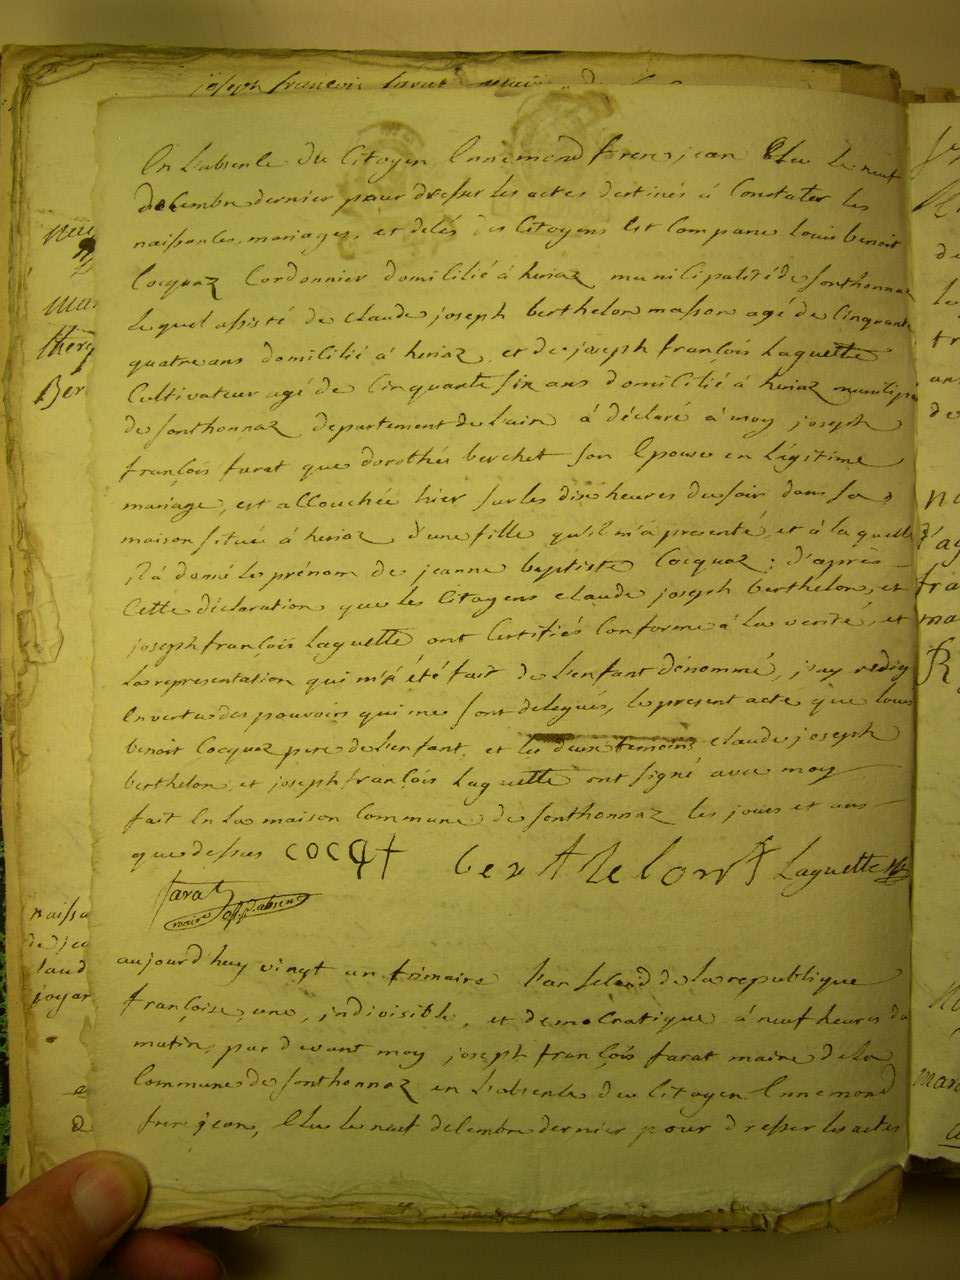 joseph françois farat maire
En L'absence du Citoyen Ennemond frere jean Elu Le neuf
decembre dernier pour dresser les actes destinés à Constater les
naissances, mariages, et décés des Citoyens Est Comparu Louis benoit
Cocquaz Cordonnier domicilié à heriaz municipalité de Sonthonnaz
lequel assisté de claude joseph berthelon masson agé de Cinquante
quatre ans domicilié à heriaz, et de joseph françois Laguette
Cultivateur agé de Cinquante six ans domicilié à heriaz municipa
de Sonthonnaz departement de L'ain à déclaré à moy joseph
françois farat que dorothée berchet son Epouse en Légitime
mariage, est accouchée hier sur les dix heures du soir dans sa
maison situé à heriaz d'une fille qu'il m'a presenté, et à laquelle
il à donné le prénom de jeanne baptiste Cocquaz; d'après
Cette déclaration que les Citoyens claude joseph berthelon, et
joseph françois Laguette ont Certifiés Conforme à La verité, et
La representation qui m'a été fait de L'enfant dénommé, j'ay redigé
En vertu des pouvoirs qui me sont delegués, le present acte que Louis
benoit Cocquaz pere de L'enfant, et les deux temoins claude joseph
berthelon, et joseph françois Laguette ont signé avec moy
fait En La maison Commune de Sonthonnaz les jours et ans
que dessus COCQ berthelon Laguette
farat
maire off. p. absence
aujourd'huy vingt un frimaire L'an second de La republique
françoise, une, indivisible, et democratique à neuf heures du
matin, par devant moy joseph françois farat maire de La
Commune de Sonthonnaz en L'absence du Citoyen Ennemond
frere jean, Elu le neuf decembre dernier pour dresser les actes